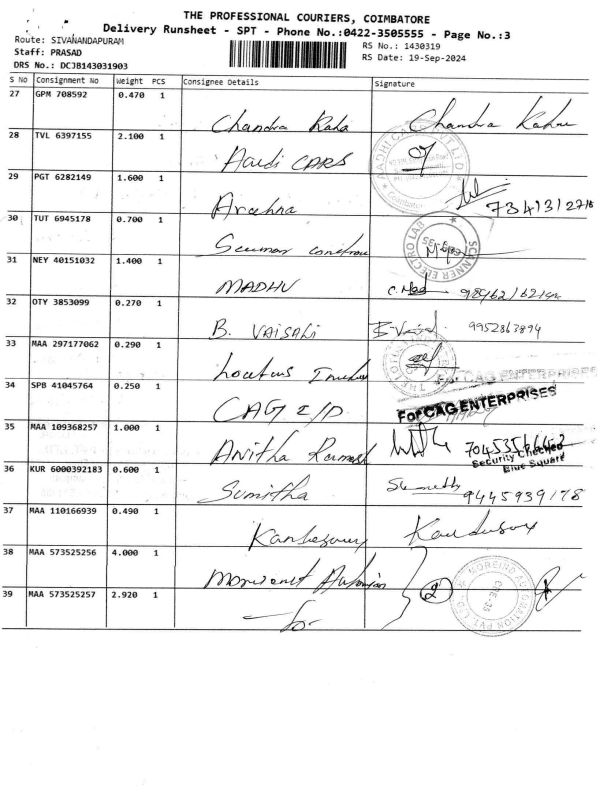 THE PROFESSIONAL COURIERS, COIMBATORE
Delivery Runsheet - SPT - Phone No.:0422-3505555 - Page No.:3
Route: SIVANANDAPURAM
RS No.: 1430319
Staff: PRASAD
RS Date: 19-Sep-2024
DRS No.: DCJB143031903
S No Consignment No Weight PCS Consignee Details Signature
27 GPM 708592 0.470 1
Chandra Chandra
28 TVL 6397155 2.100 1
Aadi CARS
29 PGT 6282149 1.600 1
Archna
30 TUT 6945178 0.700 1
SCANNER ELECTRO LAB
31 NEY 40151032 1.400 1
MADHU
32 OTY 3853099 0.270 1
B. VAISALI 9952863894
33 MAA 297177062 0.290 1
For CAG ENTERPRISES
34 SPB 41045764 0.250 1
CAG
For CAG ENTERPRISES
35 MAA 109368257 1.000 1
Anitha Ramesh
Security Checked
Blue Square
36 KUR 6000392183 0.600 1
Sumitha 9445939178
37 MAA 110166939 0.490 1
38 MAA 573525256 4.000 1
2
39 MAA 573525257 2.920 1